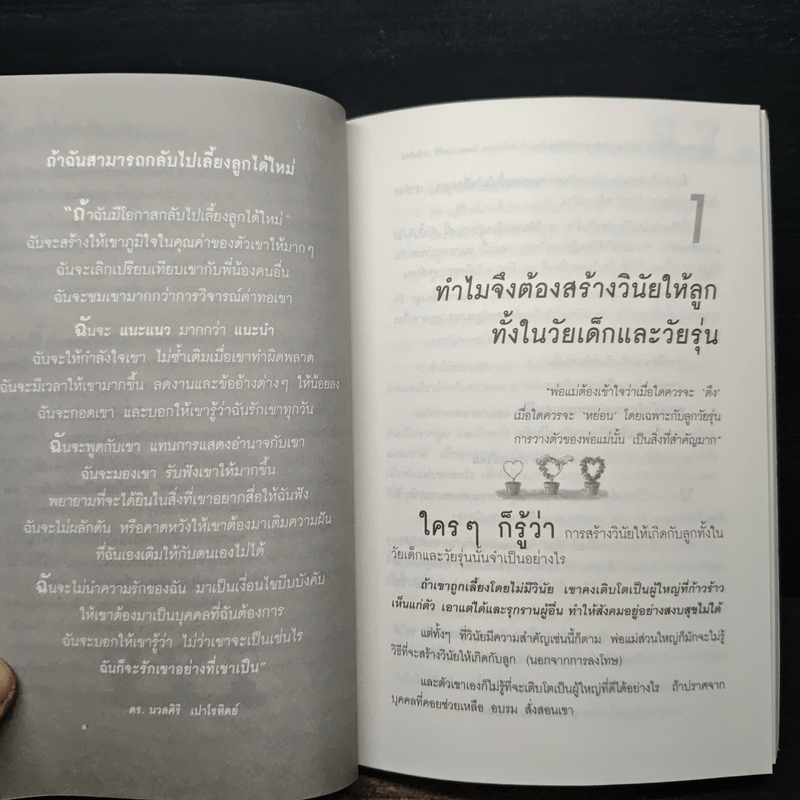 ถ้าฉันสามารถกลับไปเลี้ยงลูกได้ใหม่
"ถ้าฉันมีโอกาสกลับไปเลี้ยงลูกได้ใหม่
ฉันจะสร้างให้เขาภูมิใจในคุณค่าของตัวเขาให้มากๆ
ฉันจะเลิกเปรียบเทียบเขากับพี่น้องคนอื่น
ฉันจะชมเขามากกว่าการวิจารณ์ด่าทอเขา
ฉันจะ แนะแนว มากกว่า แนะนำ
ฉันจะให้กำลังใจเขา ไม่ซ้ำเติมเมื่อเขาทำผิดพลาด
ฉันจะมีเวลาให้เขามากขึ้น ลดงานและข้ออ้างต่างๆ ให้น้อยลง
ฉันจะกอดเขา และบอกให้เขารู้ว่าฉันรักเขาทุกวัน
ฉันจะพูดกับเขา แทนการแสดงอำนาจกับเขา
ฉันจะมองเขา รับฟังเขาให้มากขึ้น
พยายามที่จะได้ยินในสิ่งที่เขาอยากสื่อให้ฉันฟัง
ฉันจะไม่ผลักดัน หรือคาดหวังให้เขาต้องมาเติมความฝัน
ที่ฉันเองเติมให้กับตนเองไม่ได้
ฉันจะไม่นำความรักของฉัน มาเป็นเงื่อนไขบีบบังคับ
ให้เขาต้องมาเป็นบุคคลที่ฉันต้องการ
ฉันจะบอกให้เขารู้ว่า ไม่ว่าเขาจะเป็นเช่นไร
ฉันก็จะรักเขาอย่างที่เขาเป็น"
ดร. นวลศิริ เปาโรหิตย์
1
ทำไมจึงต้องสร้างวินัยให้ลูก
ทั้งในวัยเด็กและวัยรุ่น
"พ่อแม่ต้องเข้าใจว่าเมื่อใดควรจะ 'ตึง'
เมื่อใดควรจะ 'หย่อน' โดยเฉพาะกับลูกวัยรุ่น
การวางตัวของพ่อแม่นั้น เป็นสิ่งที่สำคัญมาก"
ใครๆ ก็รู้ว่า การสร้างวินัยให้เกิดกับลูกทั้งใน
วัยเด็กและวัยรุ่นนั้นจำเป็นอย่างไร
ถ้าเขาถูกเลี้ยงโดยไม่มีวินัย เขาคงเติบโตเป็นผู้ใหญ่ที่ก้าวร้าว
เห็นแก่ตัว เอาแต่ได้และรุกรานผู้อื่น ทำให้สังคมอยู่อย่างสงบสุขไม่ได้
แต่ทั้งๆ ที่วินัยมีความสำคัญเช่นนี้ก็ตาม พ่อแม่ส่วนใหญ่ก็มักจะไม่รู้
วิธีที่จะสร้างวินัยให้เกิดกับลูก (นอกจากการลงโทษ)
และตัวเขาเองก็ไม่รู้ที่จะเติบโตเป็นผู้ใหญ่ที่ดีได้อย่างไร ถ้าปราศจาก
บุคคลที่คอยช่วยเหลือ อบรม สั่งสอนเขา